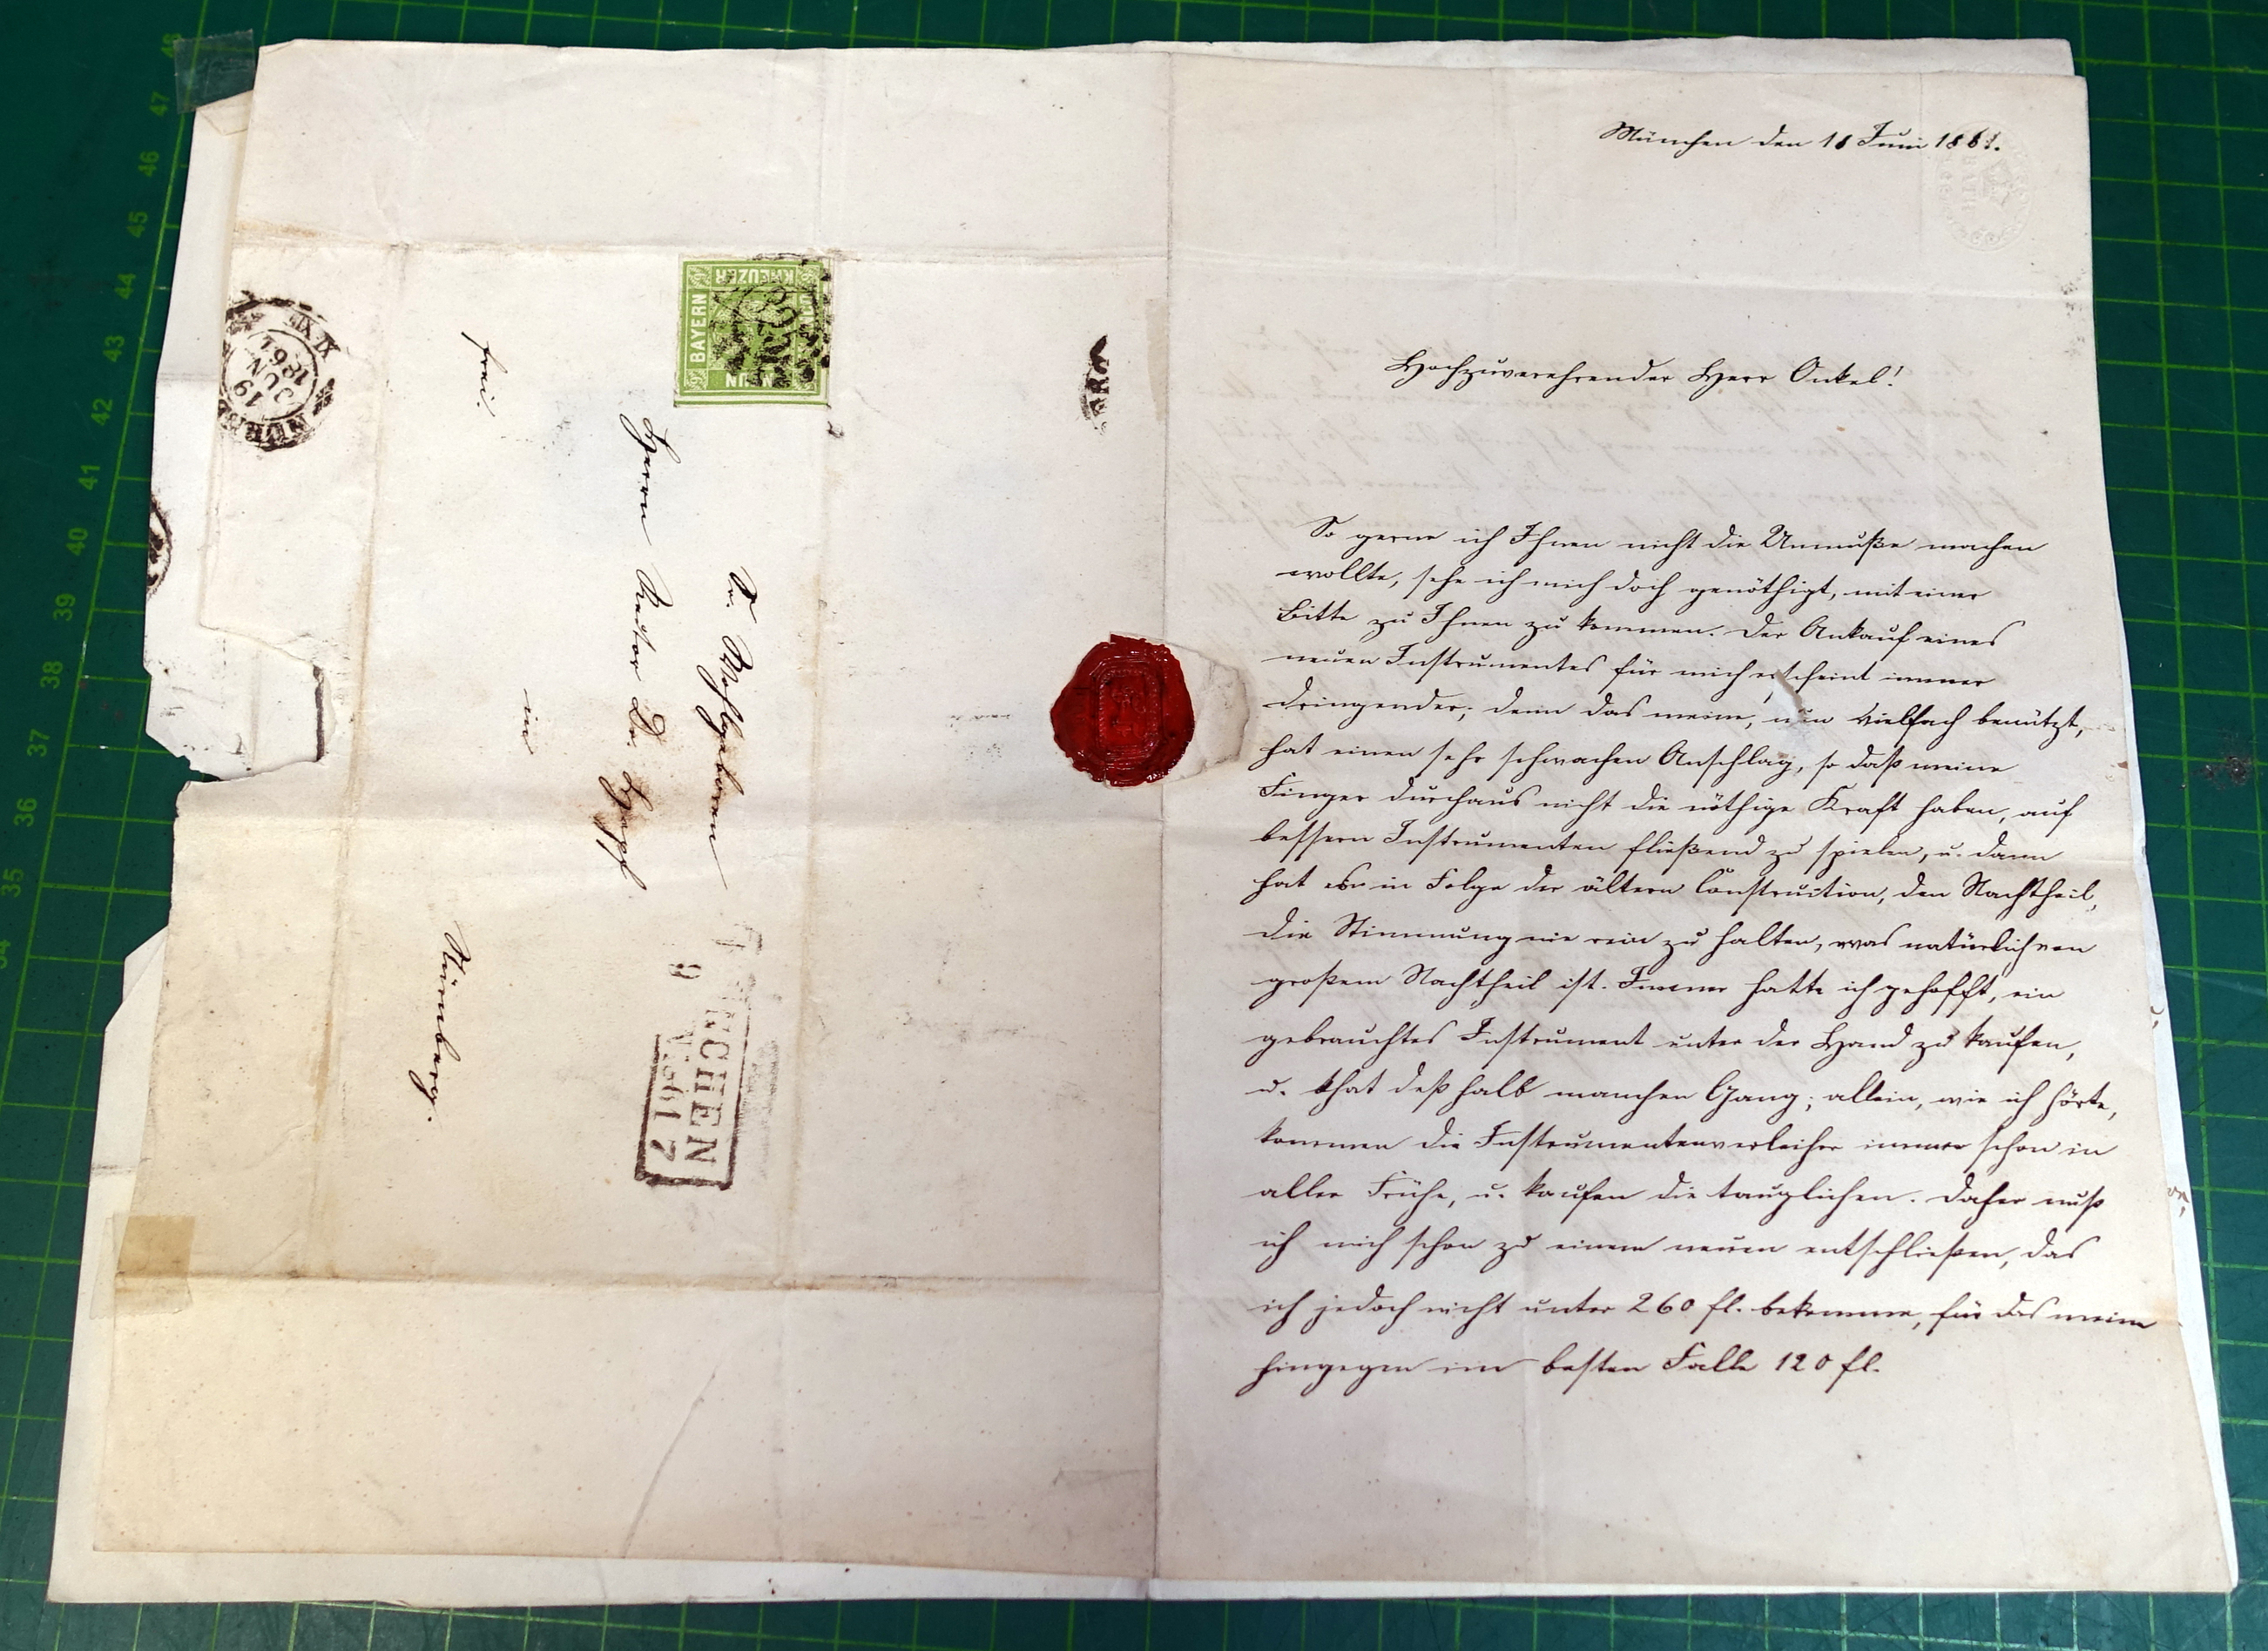 München den 18 Juni 1861.
BATH
Hochzuverehrender Herr Onkel!
So gerne ich Ihnen nicht die Unmuße machen
wollte, sehe ich mich doch genöthigt, mit einer
Bitte zu Ihnen zu kommen. Der Ankauf eines
neuen Instrumentes für mich erscheint immer
dringender; denn das meine, nun vielfach benützt,
hat einen sehr schwachen Anschlag, so daß meine
Finger durchaus nicht die nöthige Kraft haben, auf
bessern Instrumenten fließend zu spielen, u. dann
hat es in Folge der ältern Construction, den Nachtheil,
die Stimmung nie rein zu halten, was natürlich von
großem Nachtheil ist. Immer hatte ich gehofft, ein
gebrauchtes Instrument unter der Hand zu kaufen,
u. that deßhalb manchen Gang; allein, wie ich hörte,
kommen die Instrumentenverleiher immer schon in
aller Frühe, u. kaufen die tauglichen. Daher muß
ich mich schon zu einem neuen entschließen, das
ich jedoch nicht unter 260 fl. bekomme, für das meine
hingegen im besten Falle 120 fl.
BAYERN
KREUZER
NEUN
Sr. Wohlgeboren
Herrn Rector Dr.
in
Nürnberg.
frei.
19
JUN
1861
XII